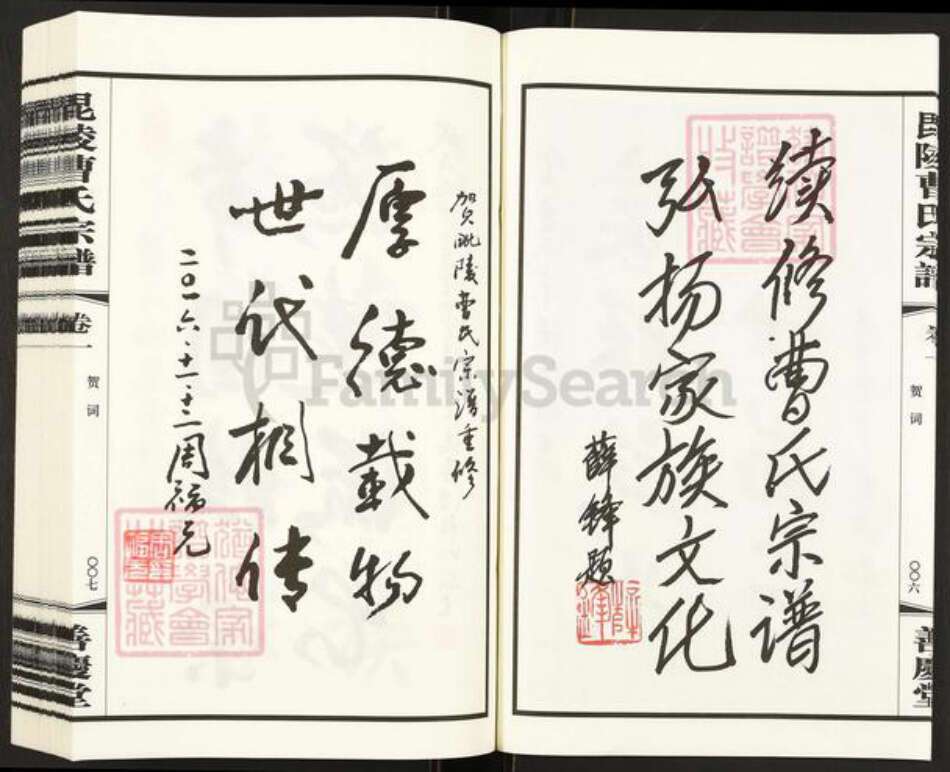 毘陵曹氏宗譜
卷一
贺词
〇〇六
善慶堂
续修曹氏宗谱
弘扬家族文化
薛锋题
贺毗陵曹氏宗谱重修
厚德载物
世代相传
二〇一六·十一·十二 周福元
毘陵曹氏宗譜
卷一
贺词
〇〇七
善慶堂
FamilySearch